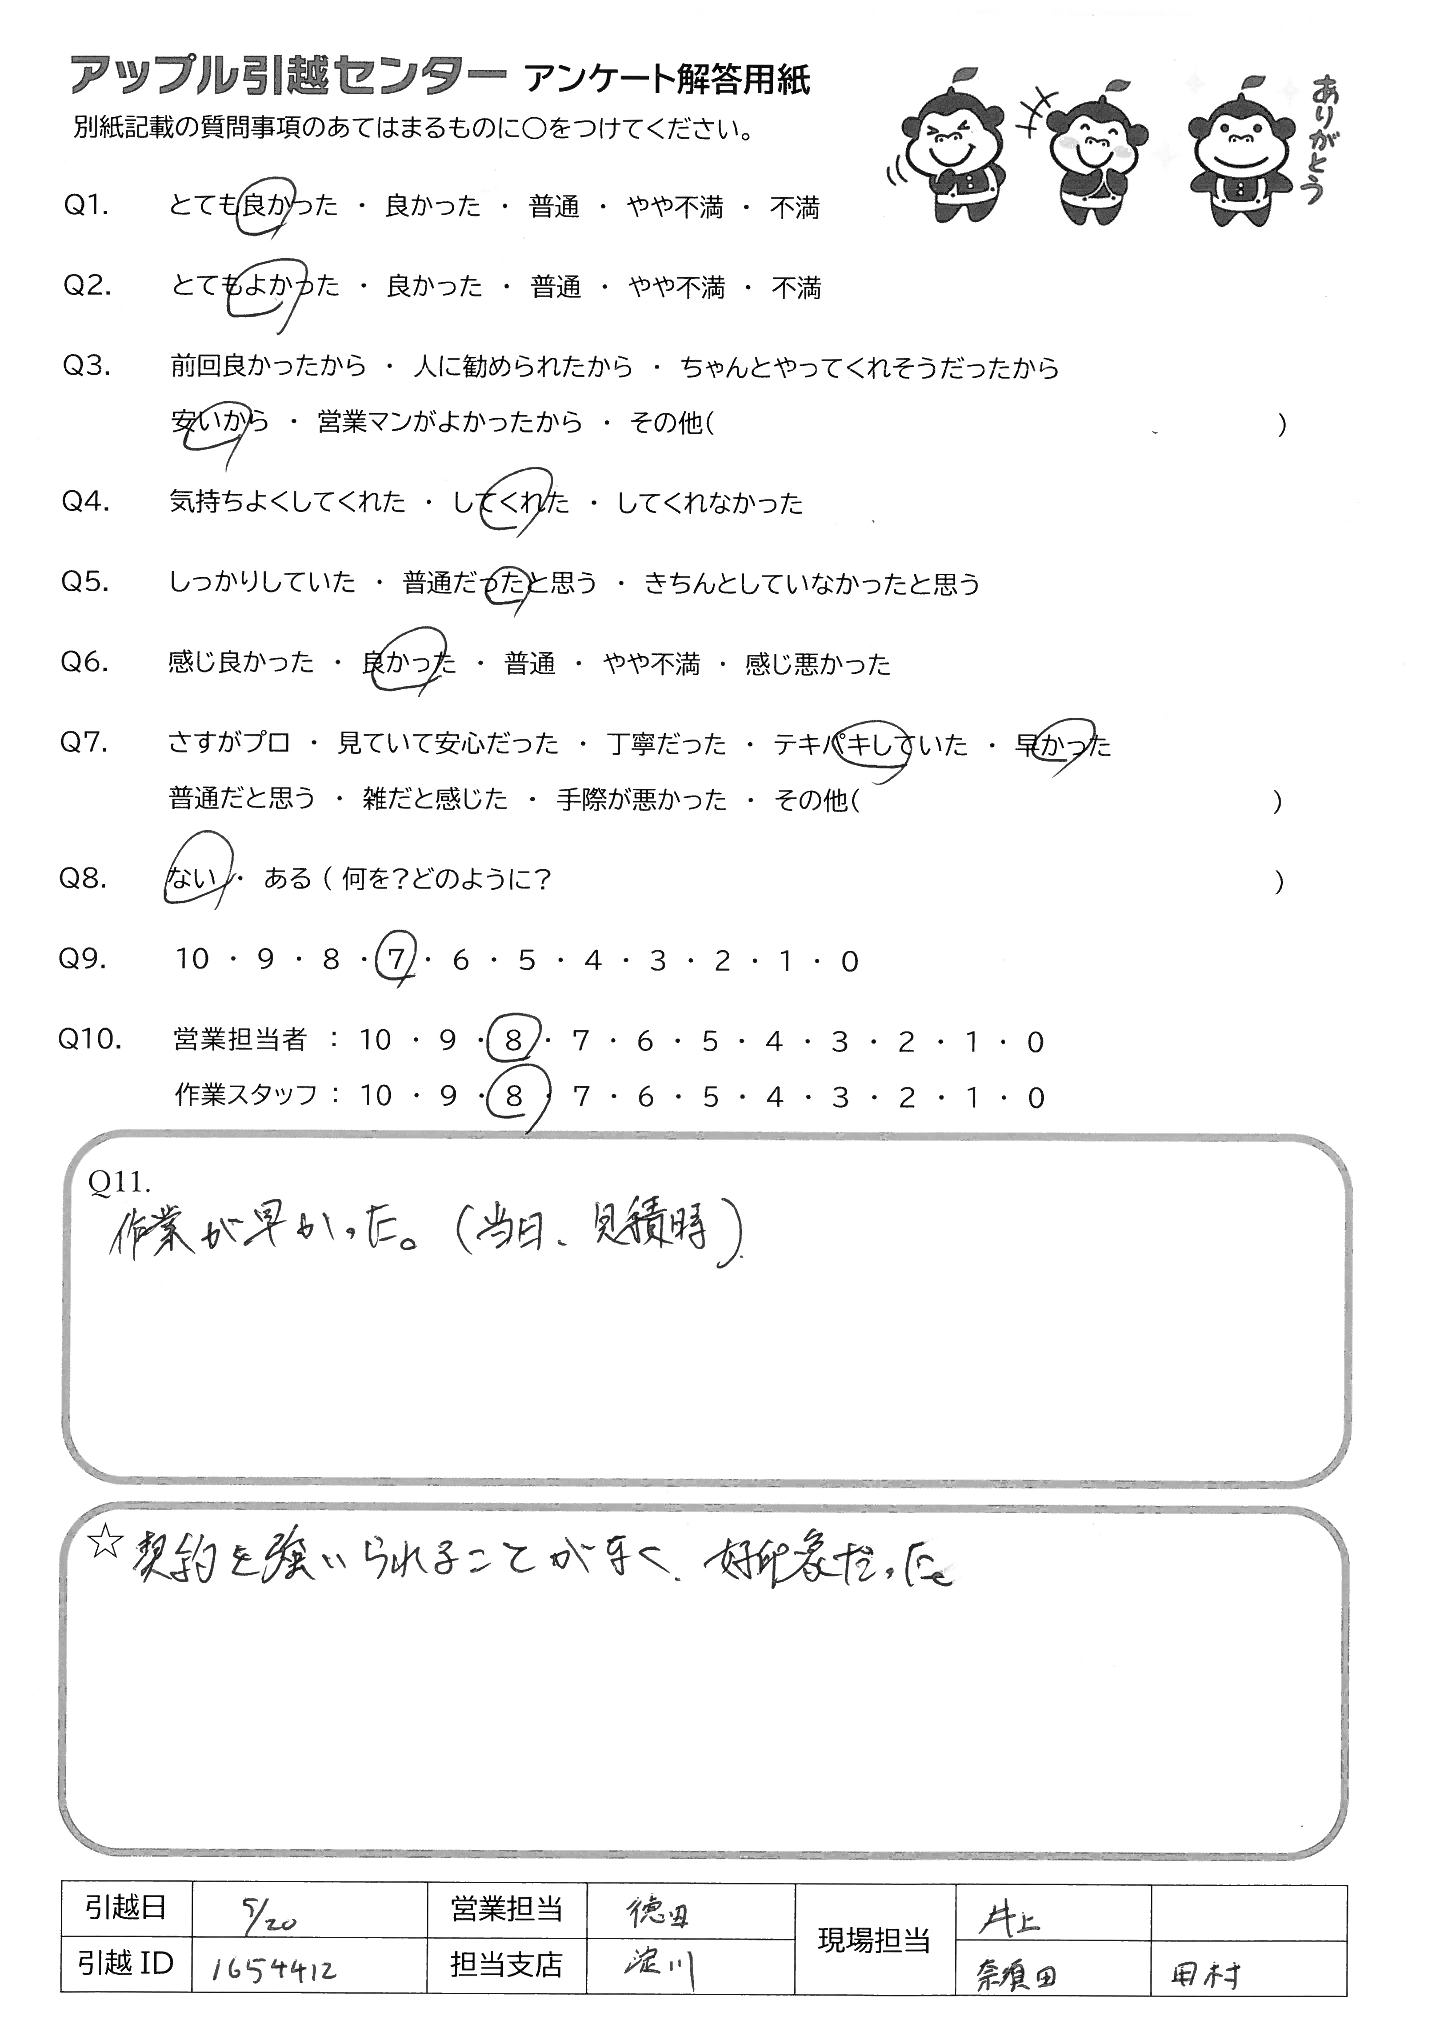 アップル引越センター アンケート解答用紙
別紙記載の質問事項のあてはまるものに○をつけてください。
ありがとう
Q1. とても良かった ・ 良かった ・ 普通 ・ やや不満 ・ 不満
Q2. とてもよかった ・ 良かった ・ 普通 ・ やや不満 ・ 不満
Q3. 前回良かったから ・ 人に勧められたから ・ ちゃんとやってくれそうだったから
安いから ・ 営業マンがよかったから ・ その他( )
Q4. 気持ちよくしてくれた ・ してくれた ・ してくれなかった
Q5. しっかりしていた ・ 普通だったと思う ・ きちんとしていなかったと思う
Q6. 感じ良かった ・ 良かった ・ 普通 ・ やや不満 ・ 感じ悪かった
Q7. さすがプロ ・ 見ていて安心だった ・ 丁寧だった ・ テキパキしていた ・ 早かった
普通だと思う ・ 雑だと感じた ・ 手際が悪かった ・ その他( )
Q8. ない ・ ある ( 何を?どのように? )
Q9. 10 ・ 9 ・ 8 ・ 7 ・ 6 ・ 5 ・ 4 ・ 3 ・ 2 ・ 1 ・ 0
Q10. 営業担当者 : 10 ・ 9 ・ 8 ・ 7 ・ 6 ・ 5 ・ 4 ・ 3 ・ 2 ・ 1 ・ 0
作業スタッフ : 10 ・ 9 ・ 8 ・ 7 ・ 6 ・ 5 ・ 4 ・ 3 ・ 2 ・ 1 ・ 0
Q11.
作業が早かった。(当日、見積時)
☆契約を強いられることがなく、好印象だった。
引越日 5/20 営業担当 徳田 現場担当 井上
引越ID 1654412 担当支店 淀川 奈須田 田村